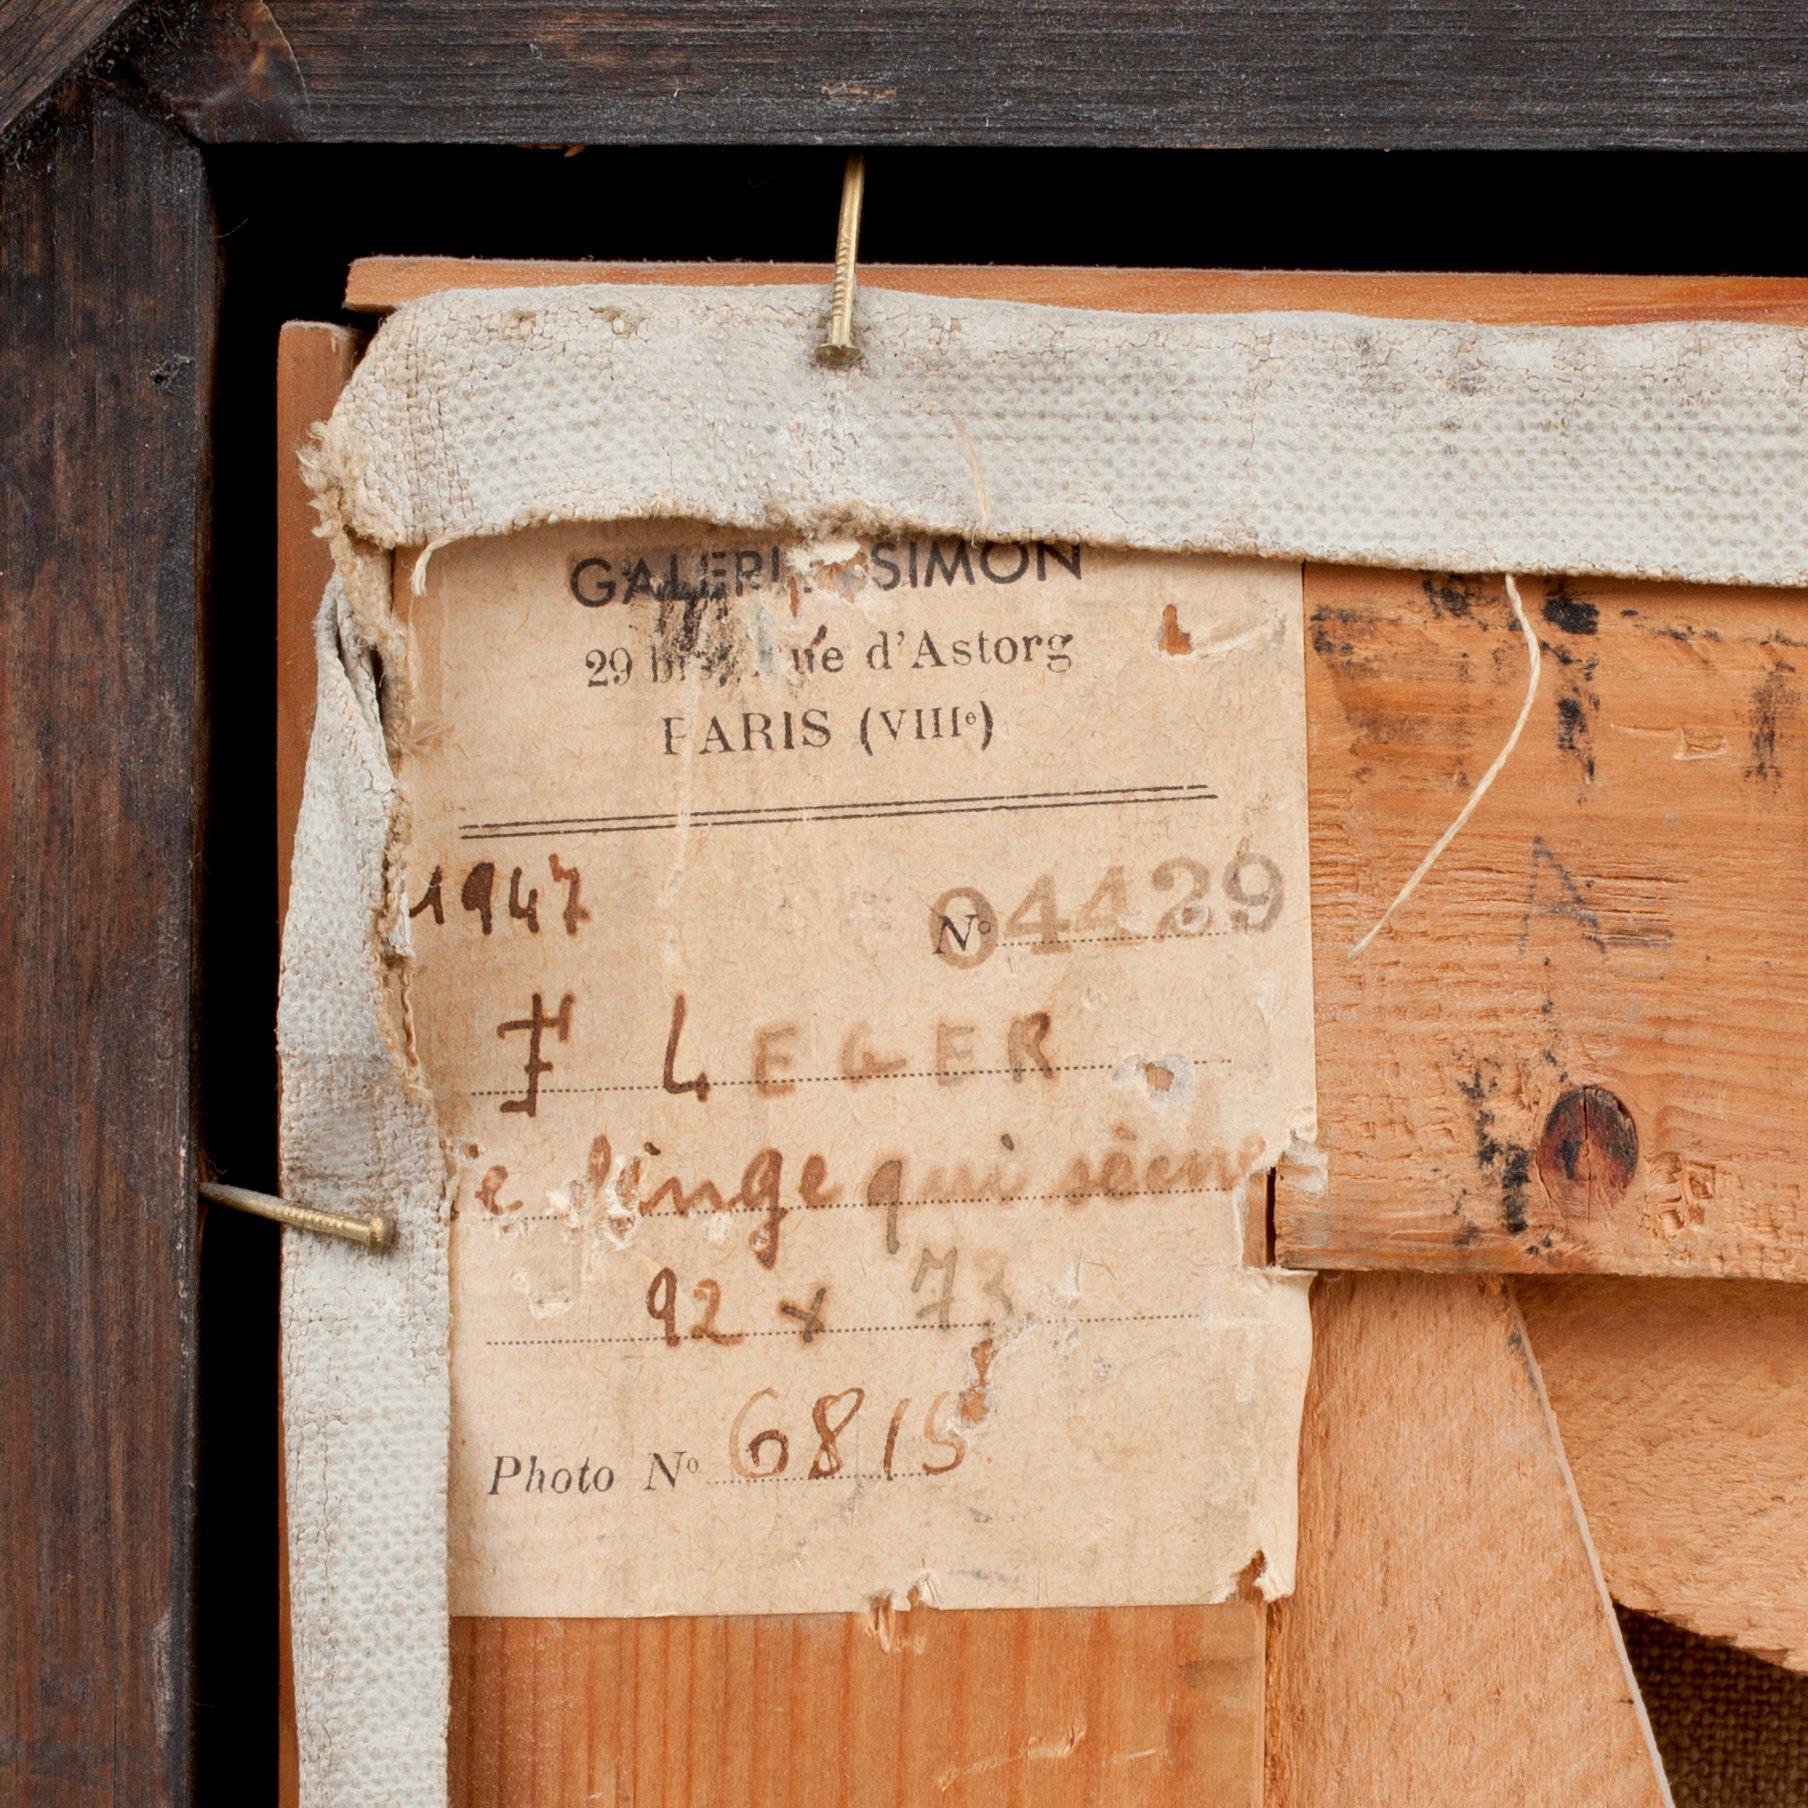 GALERIE SIMON
29 bis, Rue d'Astorg
PARIS (VIIIe)
1947 No 04429
F LEGER
le linge qui sèche
92 x 73
Photo No 6815